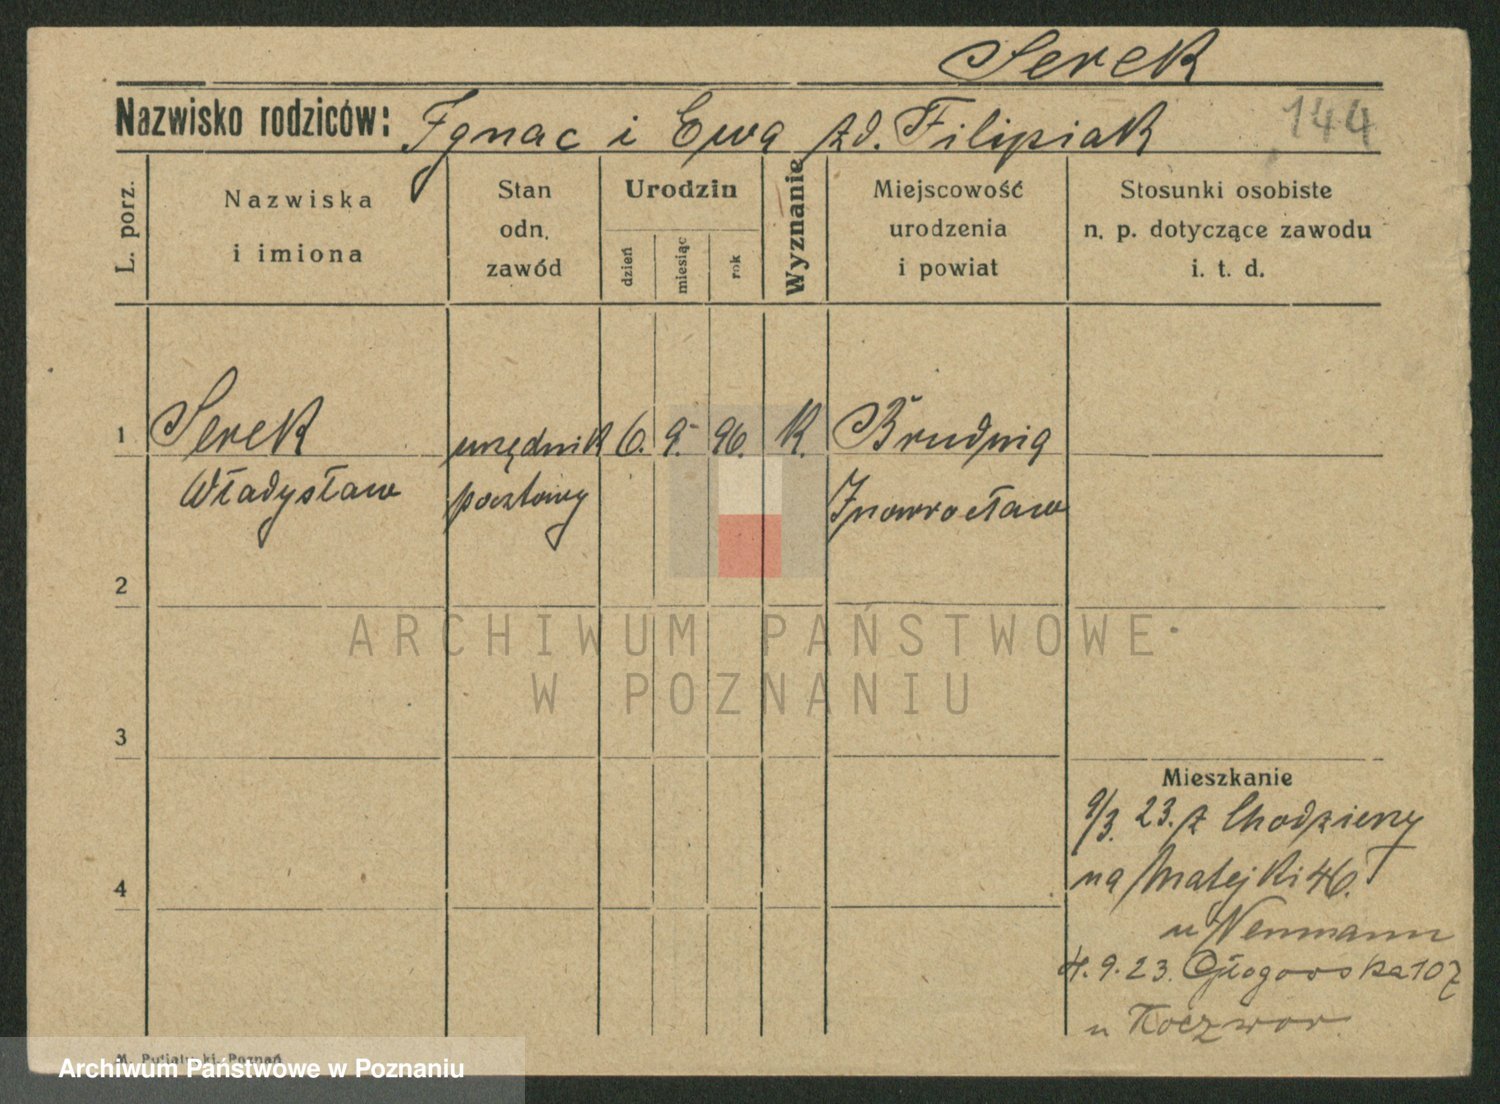 Serek
Nazwisko rodziców: Ignac i Ewa zd. Filipiak 144
L. porz.
Nazwiska
i imiona
Stan
odn.
zawód
Urodzin
dzień
miesiąc
rok
Wyznanie
Miejscowość
urodzenia
i powiat
Stosunki osobiste
n. p. dotyczące zawodu
i. t. d.
1 Serek urzędnik 6. 9. 96. K. Brudnia
Władysław pocztowy Inowrocław
2
ARCHIWUM PAŃSTWOWE
W POZNANIU
3
Mieszkanie
9/3. 23. z Chodzieży
na Matejki 46.
4
u Neumann
4. 9. 23. Głogowska 107
u Koczwor
Poznań
Archiwum Państwowe w Poznaniu